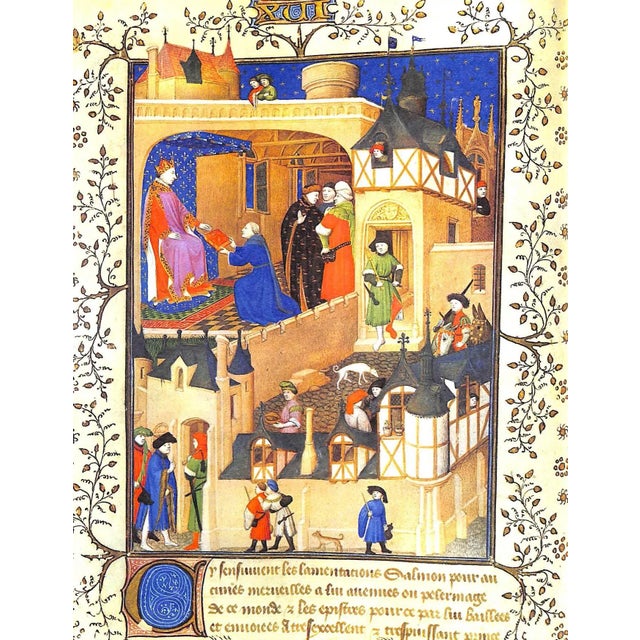 XCII
Cy sensuivent les lamentacions Salmon pour au
cunes merveilles a lui avenues ou pelermage
de ce monde & les epistres pour ce par lui baillees
et envoiees A tresexcellent & trespuissant prince